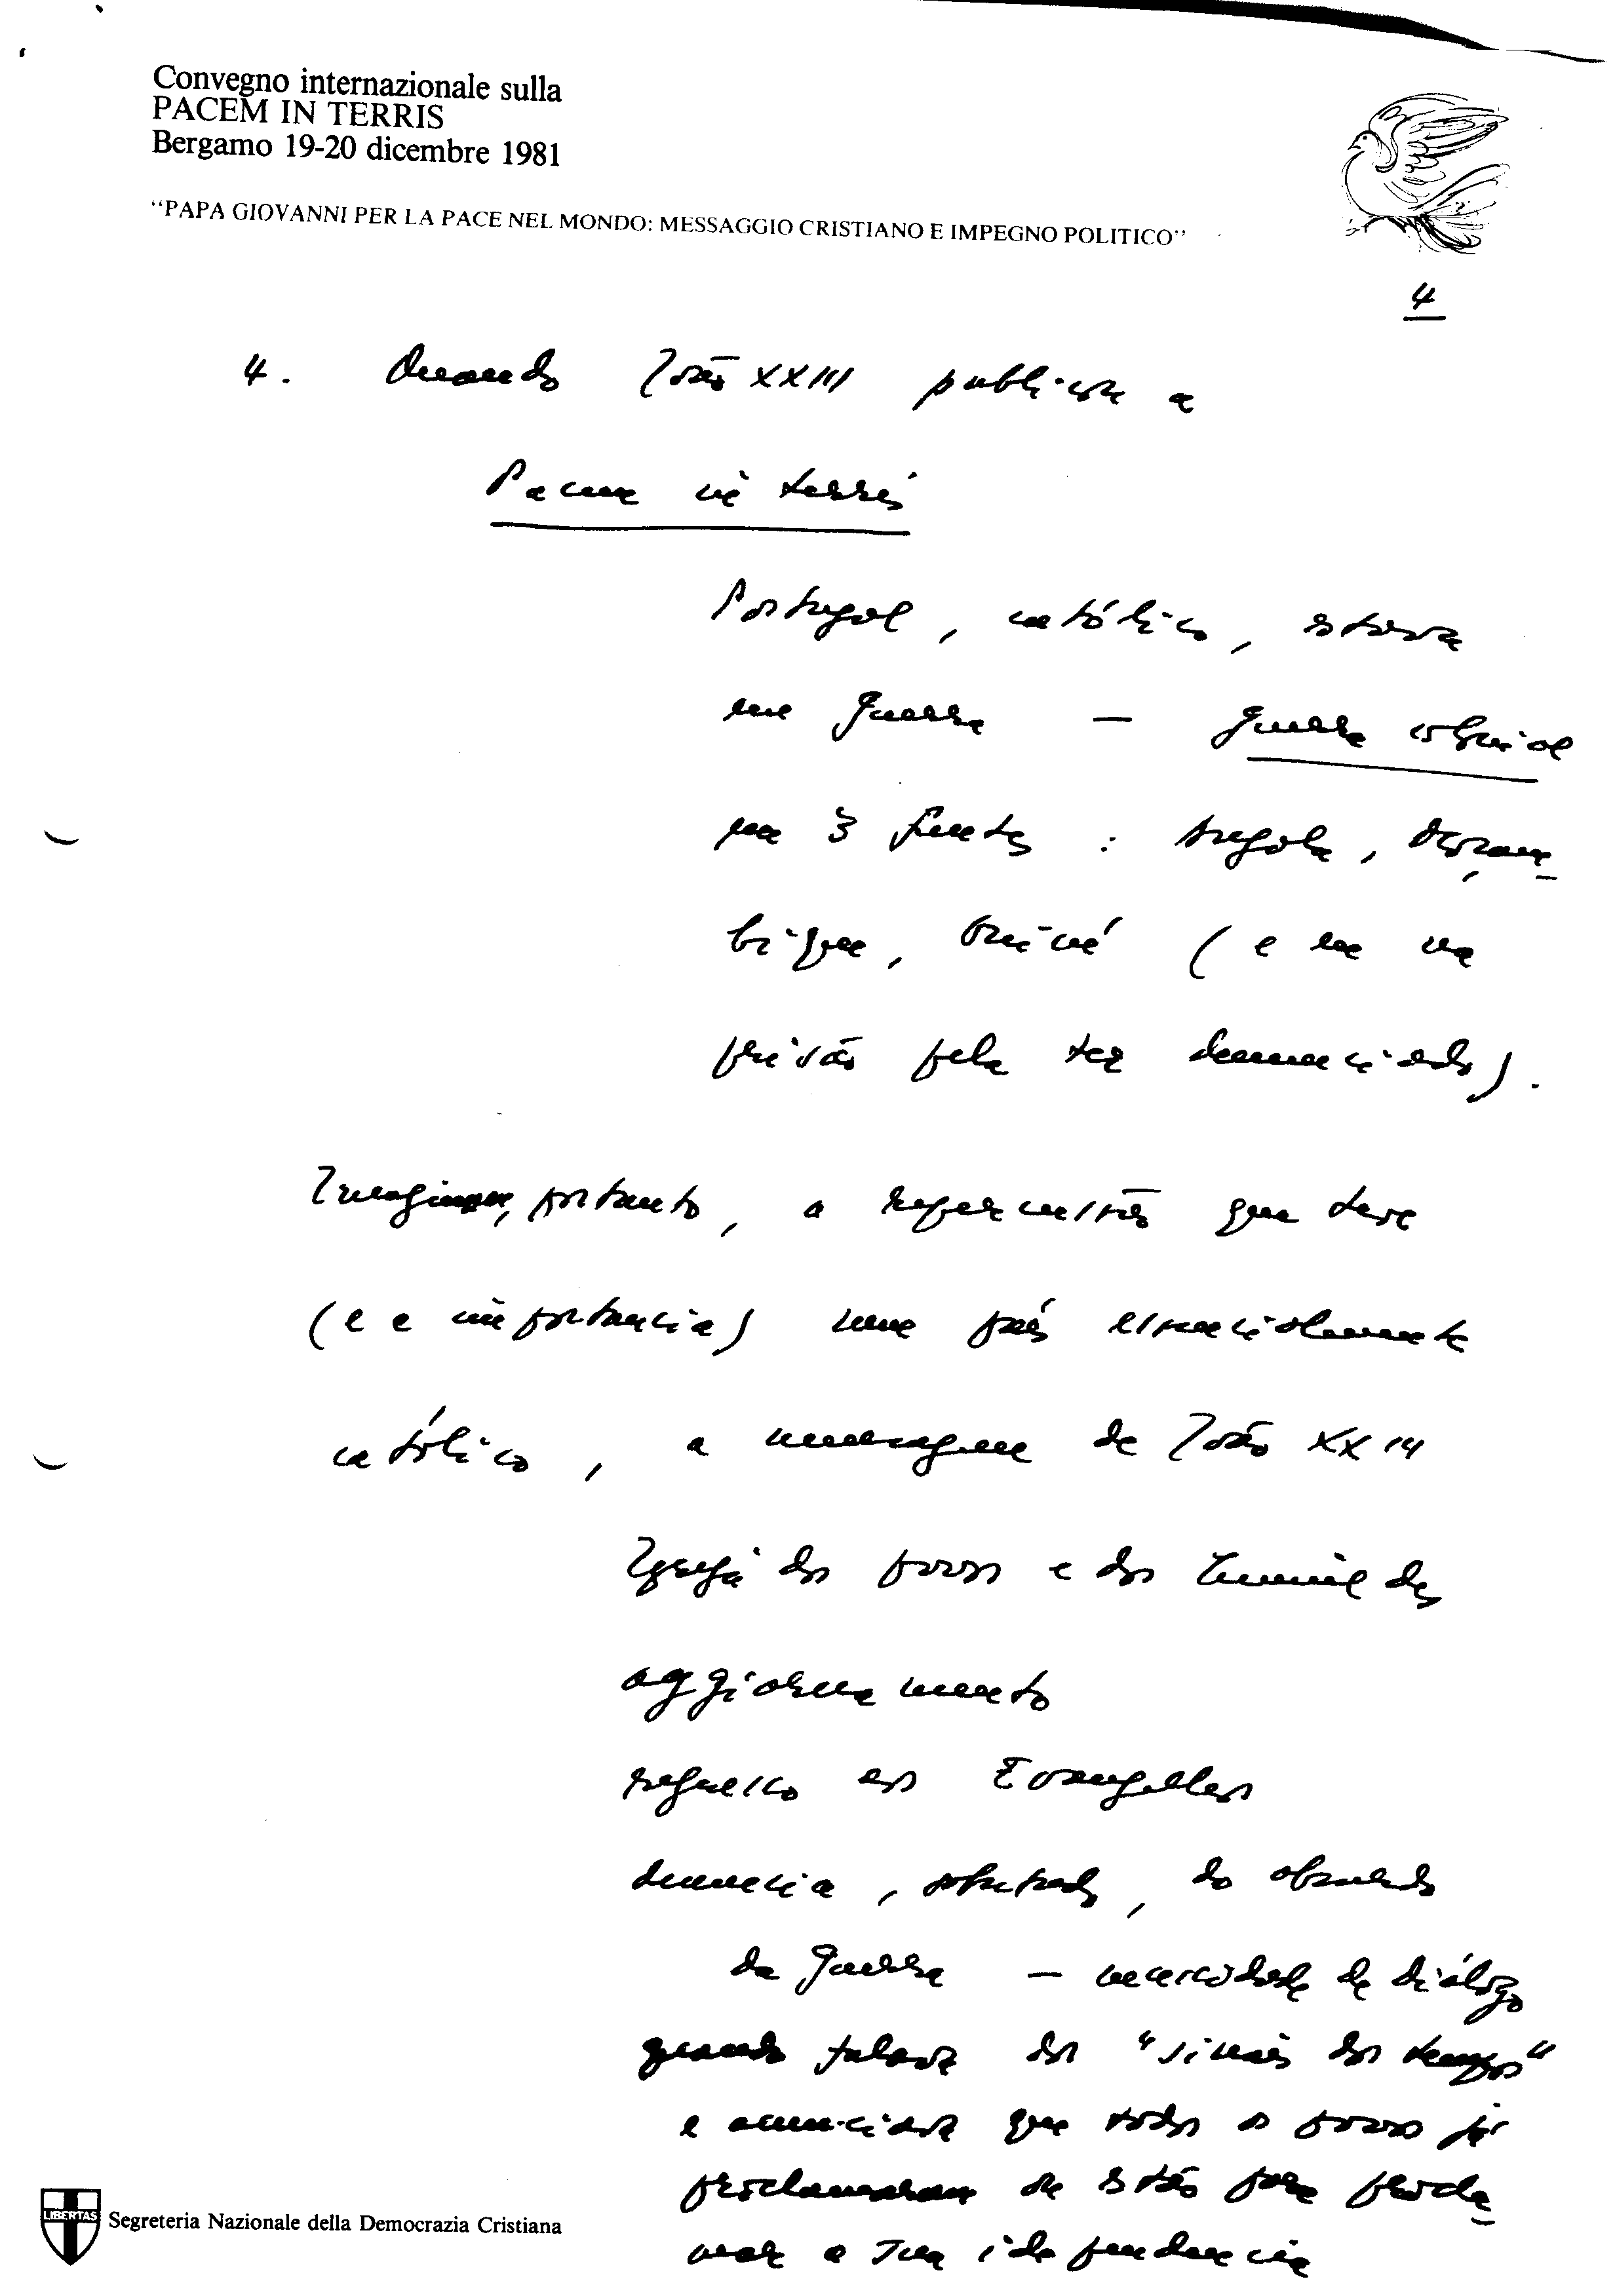 Convegno internazionale sulla
PACEM IN TERRIS
Bergamo 19-20 dicembre 1981
"PAPA GIOVANNI PER LA PACE NEL MONDO: MESSAGGIO CRISTIANO E IMPEGNO POLITICO"
4
4. Quando João XXIII publica a
Pacem in terris
Portugal, católico, estava
em guerra – guerra colonial
em 3 frentes : Angola, Moçam-
bique, Guiné (e eu na
prisão pela ter denunciado).
Imaginem, portanto, a repercussão que teve
(e a importancia) num país essencialmente
católico, a mensagem de João XXIII
Igreja dos povos e dos humildes
aggiornamento
regresso aos Evangelhos
denuncia, sobretudo, do absurdo
da guerra – necessidade de diálogo
quando falava dos "sinais dos tempos"
e anunciava que todos os povos já
proclamaram ou estão para procla-
mar a sua independencia
LIBERTAS
Segreteria Nazionale della Democrazia Cristiana